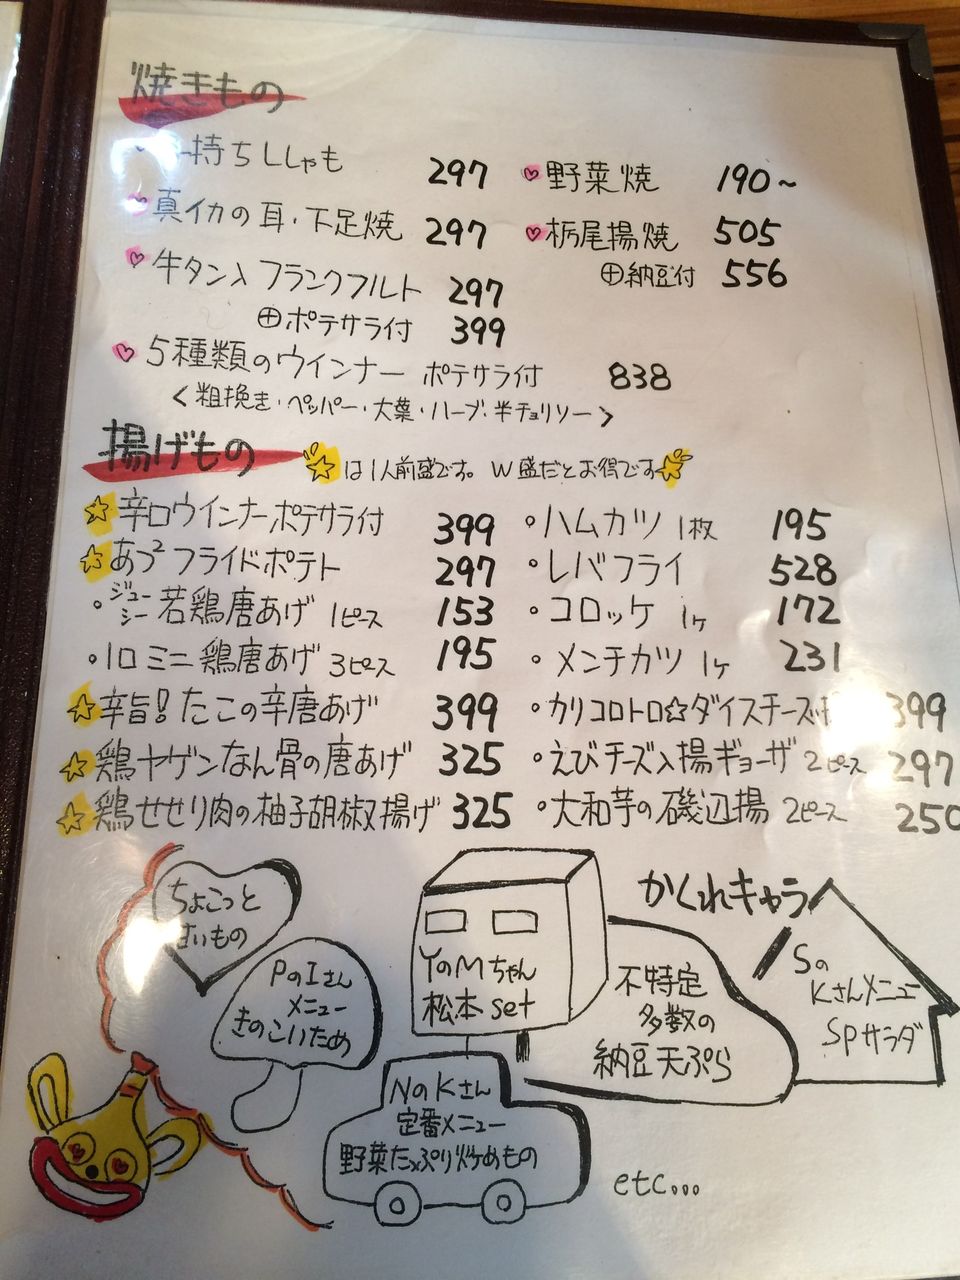 焼きもの
持ちししゃも 297
真イカの耳・下足焼 297
牛タン入フランクフルト 297
⊕ポテサラ付 399
5種類のウインナー ポテサラ付 838
<粗挽き・ペッパー・大葉・ハーブ・半チョリソー>
野菜焼 190~
栃尾揚焼 505
⊕納豆付 556
揚げもの
☆は1人前盛です。W盛だとお得です☆
☆辛口ウインナーポテサラ付 399
☆あつ2フライドポテト 297
・ジューシー若鶏唐あげ 1ピース 153
・1口ミニ鶏唐あげ 3ピース 195
☆辛旨!たこの辛唐あげ 399
☆鶏ヤゲンなん骨の唐あげ 325
☆鶏せせり肉の柚子胡椒揚げ 325
・ハムカツ 1枚 195
・レバフライ 528
・コロッケ 1ヶ 172
・メンチカツ 1ヶ 231
・カリコロトロ☆ダイスチーズ 399
・えびチーズ入揚ギョーザ 2ピース 297
・大和芋の磯辺揚 2ピース 250
ちょこっと
甘いもの
PのIさん
メニュー
きのこいため
YのMちゃん
松本set
かくれキャラ
不特定
多数の
納豆天ぷら
Sの
Kさんメニュー
SPサラダ
NのKさん
定番メニュー
野菜たっぷり炒めもの
etc...